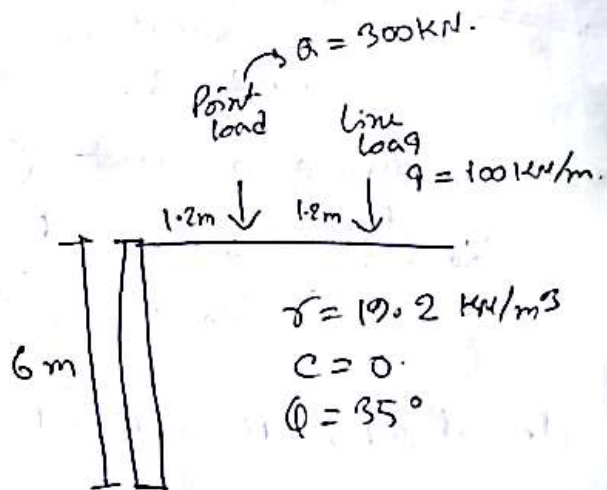 Q = 300KN.
Point
load
Line
load
q = 100 KN/m.
1.2m
1.2m
6 m
γ = 19.2 KN/m3
C = 0.
φ = 35°